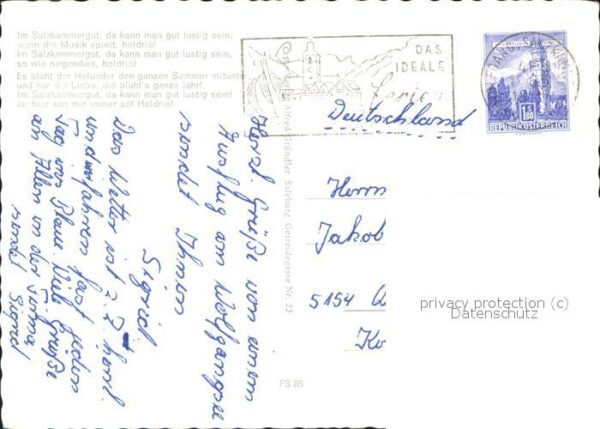 Im Salzkammergut, da kann man gut lustig sein,
wenn die Musik spielt, holdrio!
Im Salzkammergut, da kann man gut lustig sein,
so wie nirgendwo, holdrio!
Es blüht der Holunder den ganzen Sommer mitunter
und nur die Liebe, die blüht's ganze Jahr!
Im Salzkammergut da kann man gut lustig sein
Herzl. Grüße von einem
Ausflug am Wolfgangsee
sendet Ihnen
Sigrid.
Das Wetter ist z. Z. herrl.
und wir fahren fast jeden
Tag
Viele Grüße
an Allen in der Firma
sendet Sigrid
Alfred Gründler Salzburg Getreidegasse Nr. 22
FS 85
DAS
IDEALE
Ferien
1.80
REPUBLIK ÖSTERREICH
Deutschland
Herrn
Jakob
5154
privacy protection (c)
Datenschutz